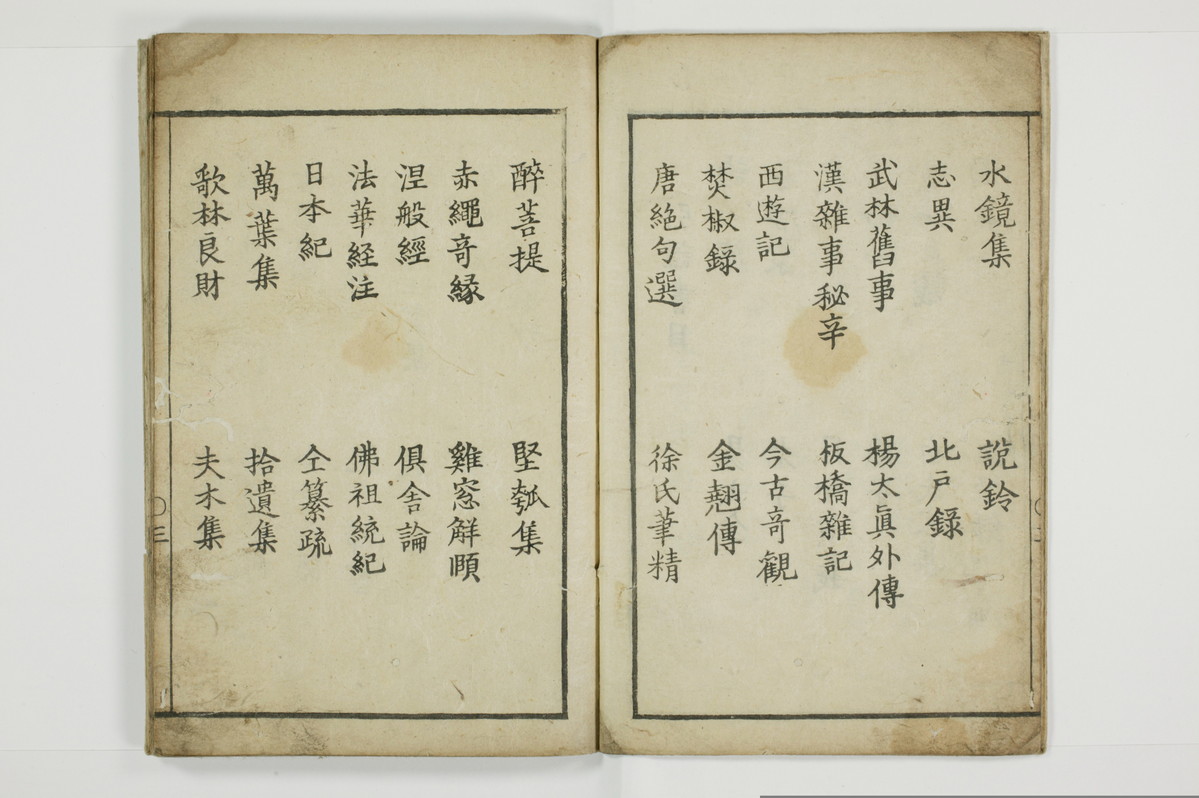 水鏡集　說鈴
志異　北戸録
武林舊事　楊太眞外傳
漢雜事秘辛　板橋雜記
西遊記　今古竒觀
焚椒録　金翹傳
唐絶句選　徐氏筆精
醉菩提　堅瓠集
赤繩竒縁　雞窓解頥
涅般經　俱舎論
法華経注　佛祖統紀
日本紀　仝纂疏
萬葉集　拾遺集
歌林良財　夫木集
〇三